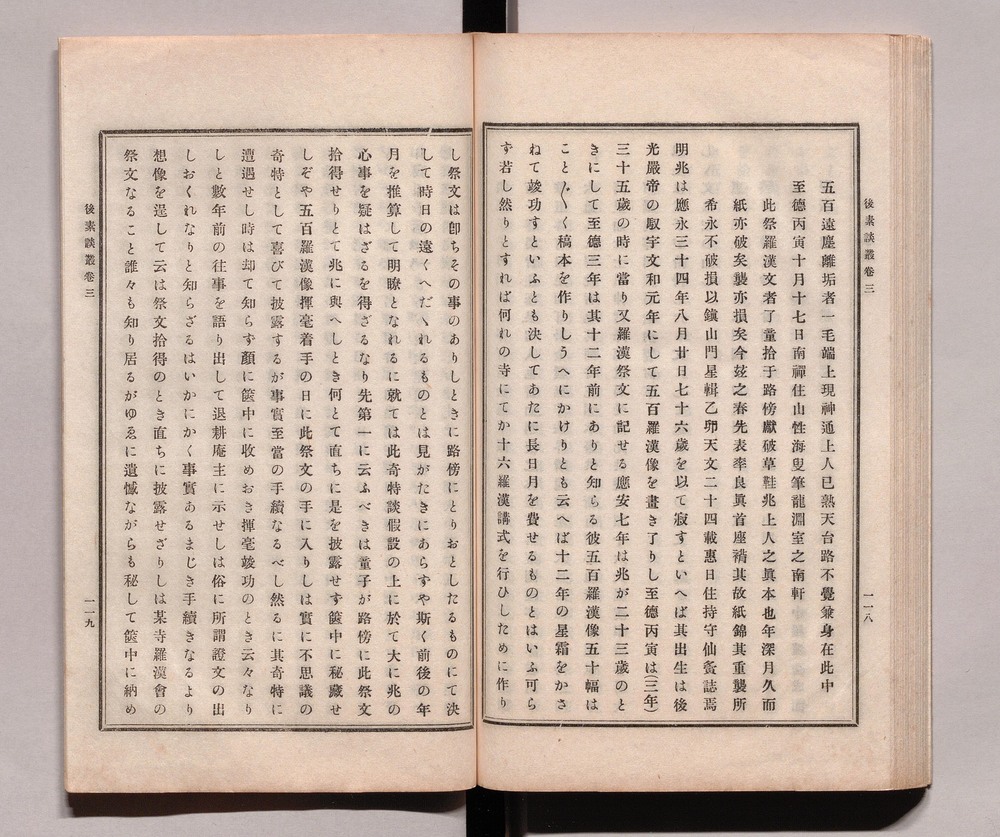 後素談叢卷三
一一八
五百遠塵離垢者一毛端上現神通上人已熟天台路不覺兼身在此中
至德丙寅十月十七日南禪住山性海叟筆龍淵室之南軒
此祭羅漢文者了童拾于路傍獻破草鞋兆上人之眞本也年深月久而
紙亦破矣襲亦損矣今玆之春先表率良眞首座褙其故紙錦其重襲所
希永不破損以鎭山門星輯乙卯天文二十四載惠日住持守仙誌焉
明兆は應永三十四年八月廿日七十六歲を以て寂すといへば其出生は後
光嚴帝の馭宇文和元年にして五百羅漢像を畫き了りし至德丙寅は(三年)
三十五歲の時に當り又羅漢祭文に記せる應安七年は兆が二十三歲のと
きにして至德三年は其十二年前にありと知らる彼五百羅漢像五十幅は
こと〴〵く稿本を作りしうへにかけりとも云へば十二年の星霜をかさ
ねて竣功すといふとも決してあたに長日月を費せるものとはいふ可ら
す若し然りとすれば何れの寺にてか十六羅漢講式を行ひしために作り
し祭文は卽ちその事のありしときに路傍にとりおとしたるものにて決
して時日の遠くへだゝれるものとは見がたきにあらすや斯く前後の年
月を推算して明瞭となれるに就ては此奇特談假設の上に於て大に兆の
心事を疑はざるを得ざるなり先第一に云ふべきは童子が路傍に此祭文
拾得せりとて兆に與へしとき何とて直ちに是を披露せす篋中に秘藏せ
しぞや五百羅漢像揮毫着手の日に此祭文の手に入りしは實に不思議の
奇特として喜びて披露するが事實至當の手續なるべし然るに其奇特に
遭遇せし時は却て知らず顏に篋中に收めおき揮毫竣功のとき云々なり
しと數年前の往事を語り出して退耕庵主に示せしは俗に所謂證文の出
しおくれなりと知らざるはいかにかく事實あるまじき手續きなるより
想像を逞して云は祭文拾得のとき直ちに披露せざりしは某寺羅漢會の
祭文なること誰々も知り居るがゆゑに遺憾ながらも秘して篋中に納め
後素談叢卷三
一一九